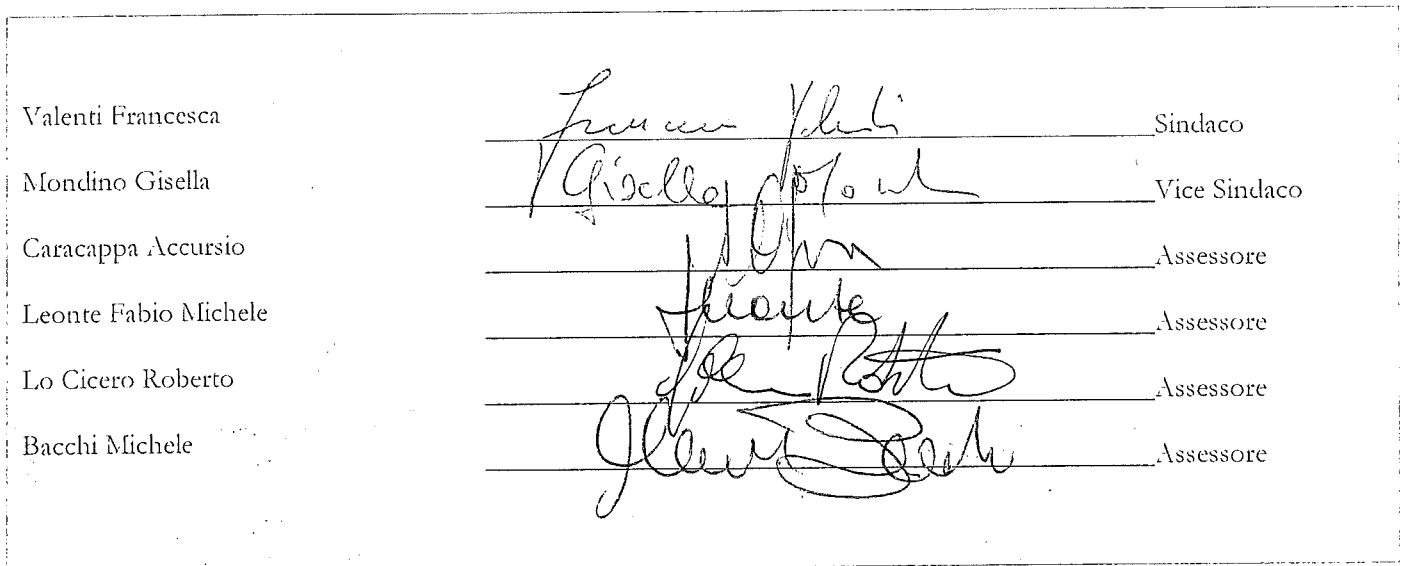 Valenti Francesca Sindaco
Mondino Gisella Gisella Vice Sindaco
Caracappa Accursio Assessore
Leonte Fabio Michele Assessore
Lo Cicero Roberto Assessore
Bacchi Michele Assessore